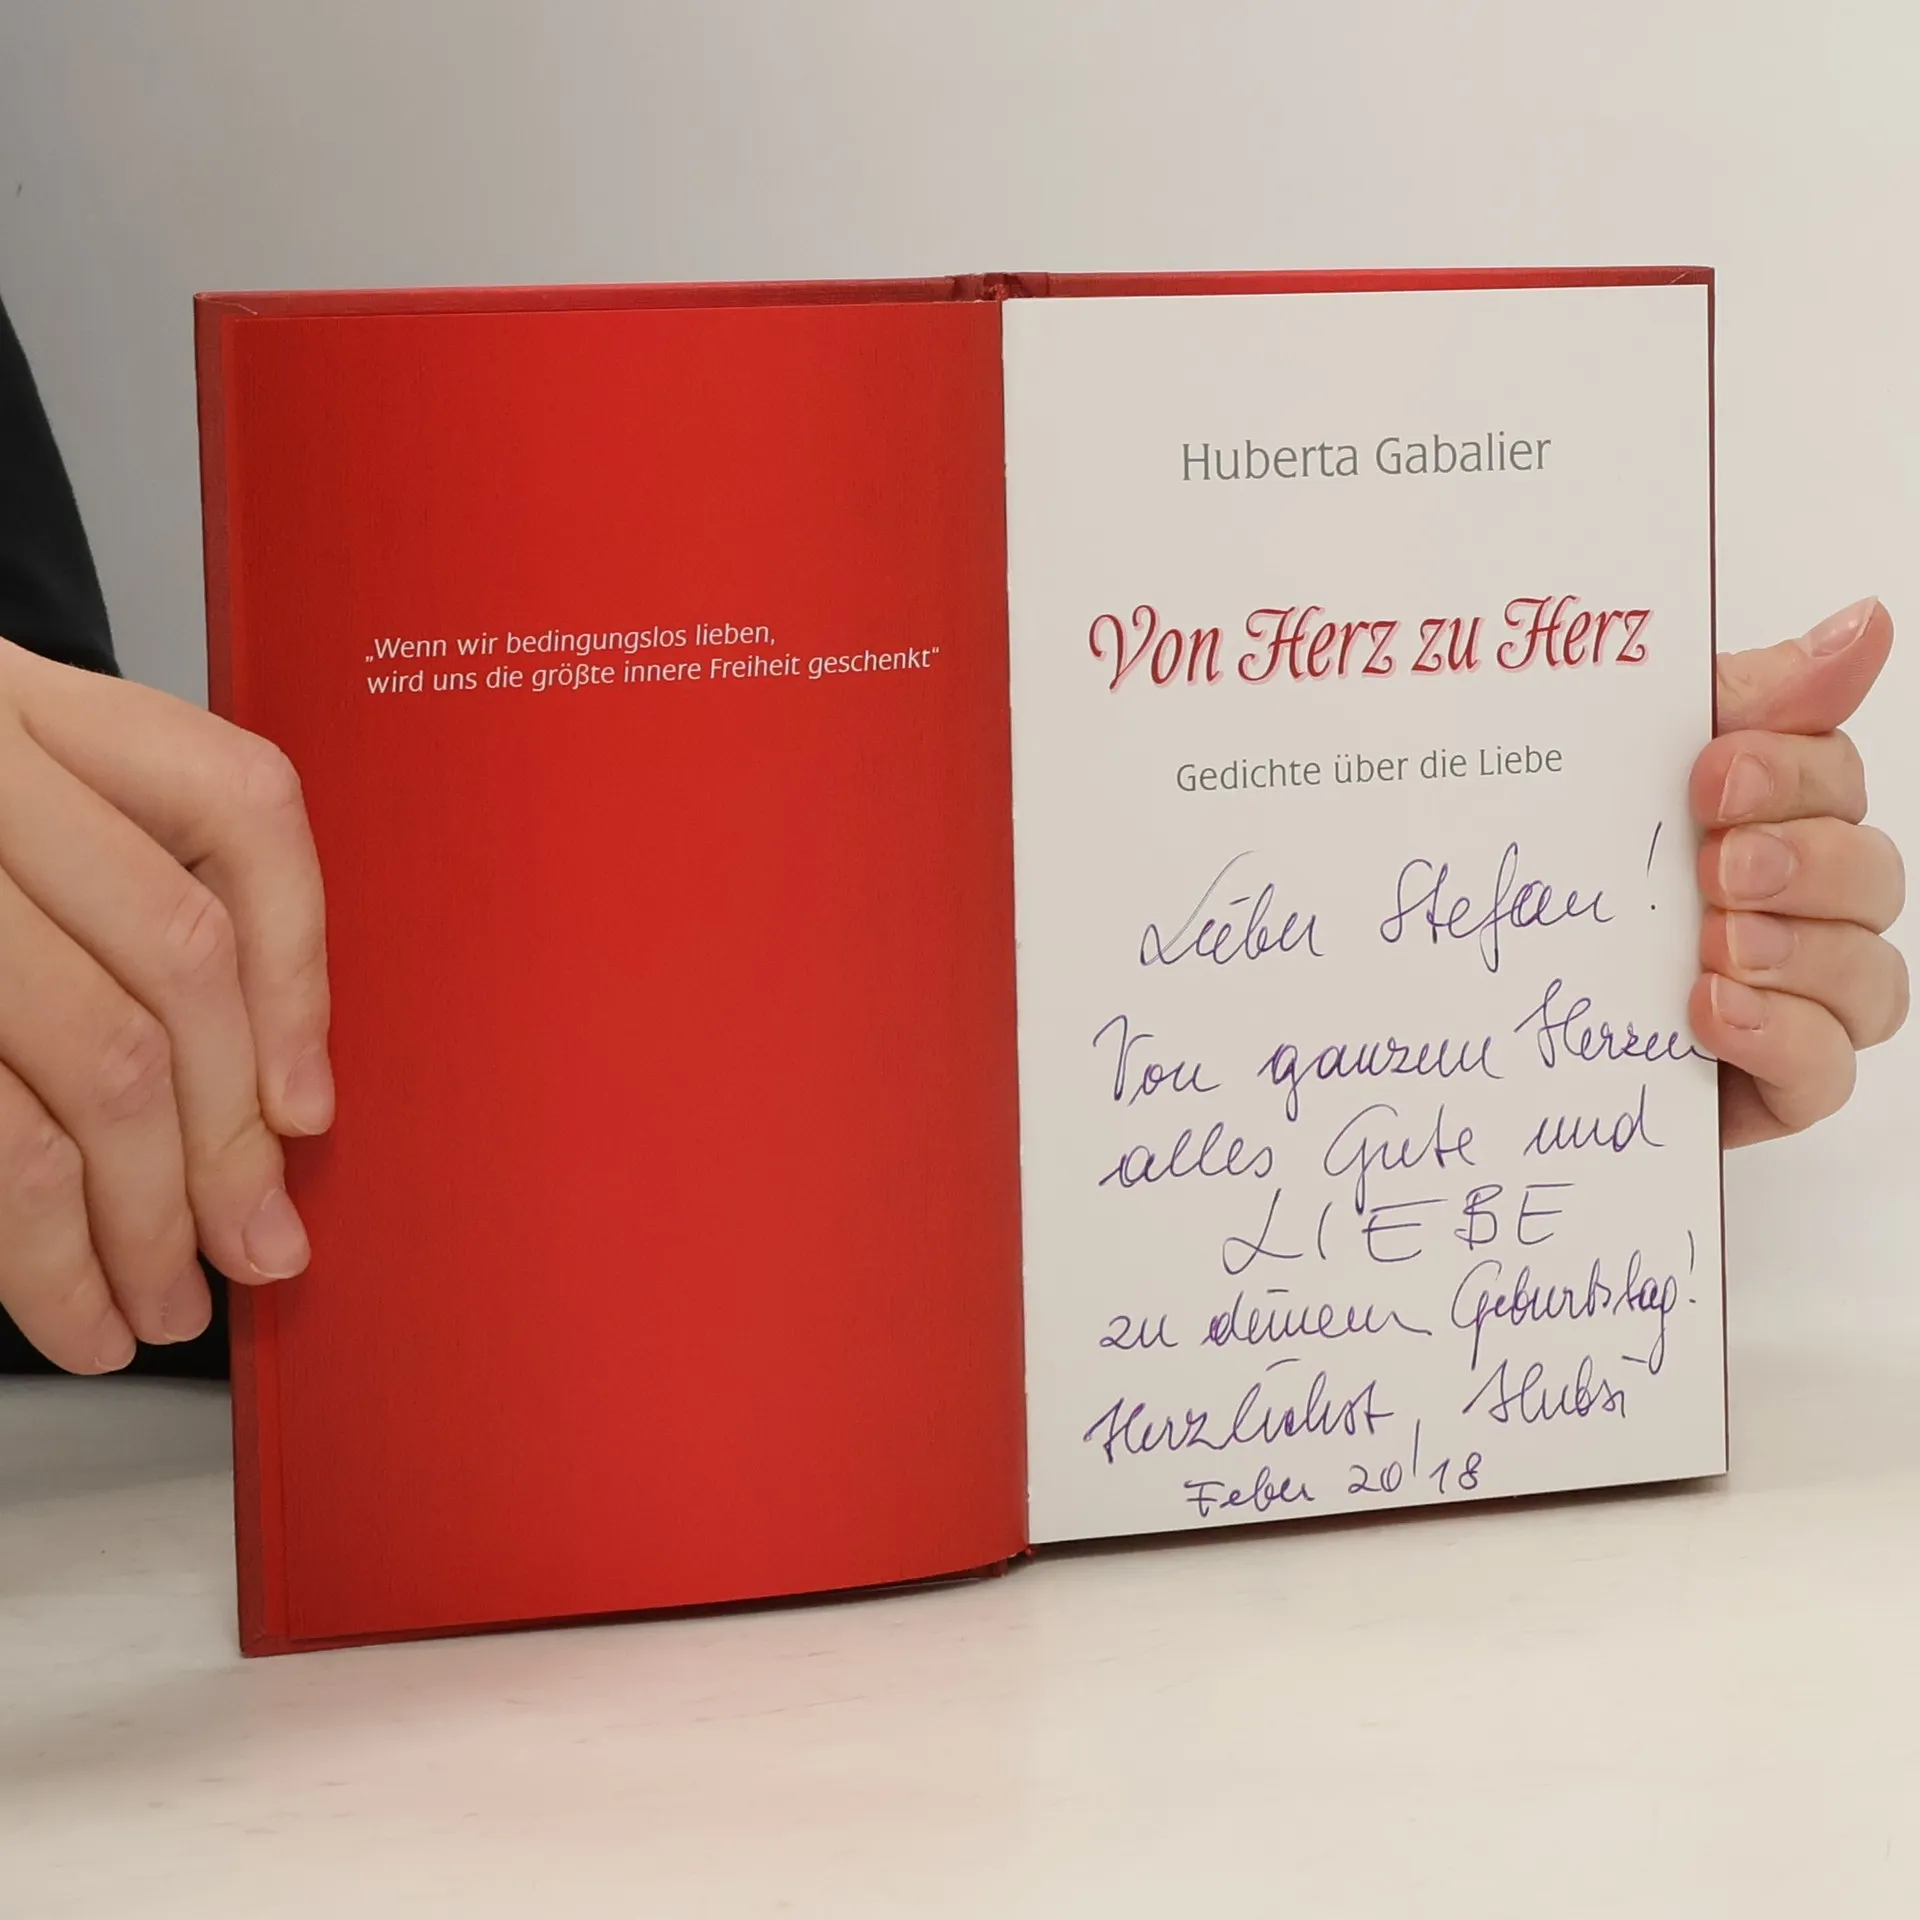 „Wenn wir bedingungslos lieben,
wird uns die größte innere Freiheit geschenkt“
Huberta Gabalier
Von Herz zu Herz
Gedichte über die Liebe
Lieber Stefan!
Von ganzem Herzen
alles Gute und
LIEBE
zu deinem Geburtstag!
Herzlichst, Hubsi
Feber 20/18